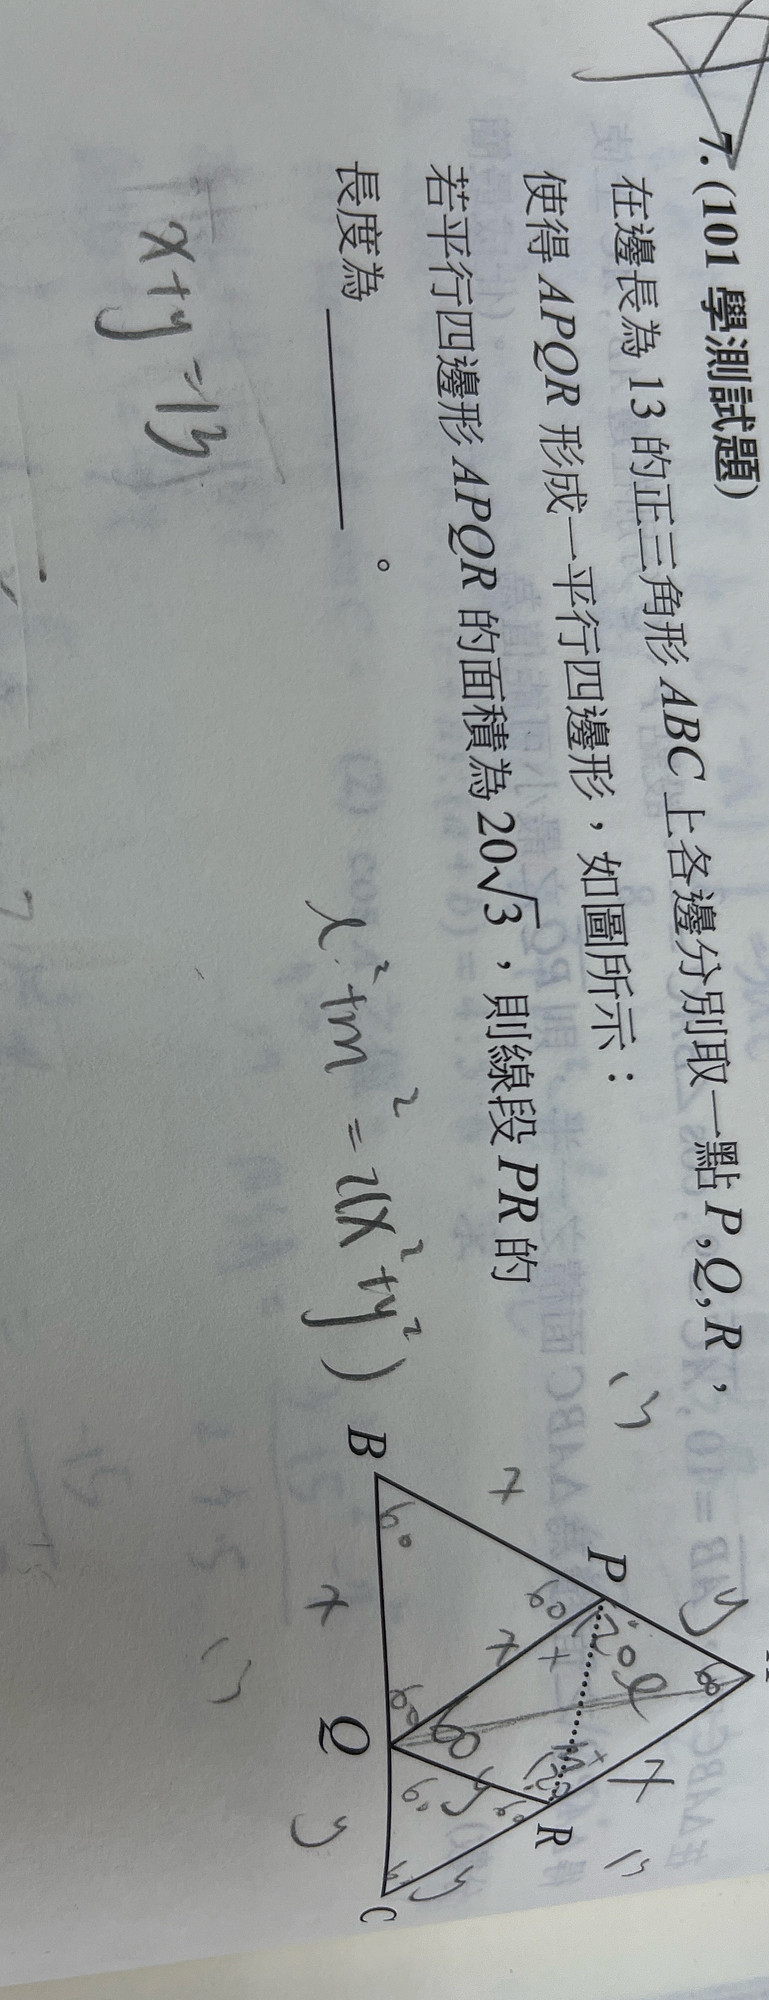 7. (101 學測試題)
在邊長為 13 的正三角形 ABC 上各邊分別取一點 P, Q, R，
使得 APQR 形成一平行四邊形，如圖所示：
若平行四邊形 APQR 的面積為 20√3，則線段 PR 的
長度為 ________ 。
x+y=13
l²+m²=2(x²+y²)
13
y
60
x
P
120
l
x
13
B
60
60
x
x
m
120
R
60
60
y
60
60
y
x
Q
y
C
13